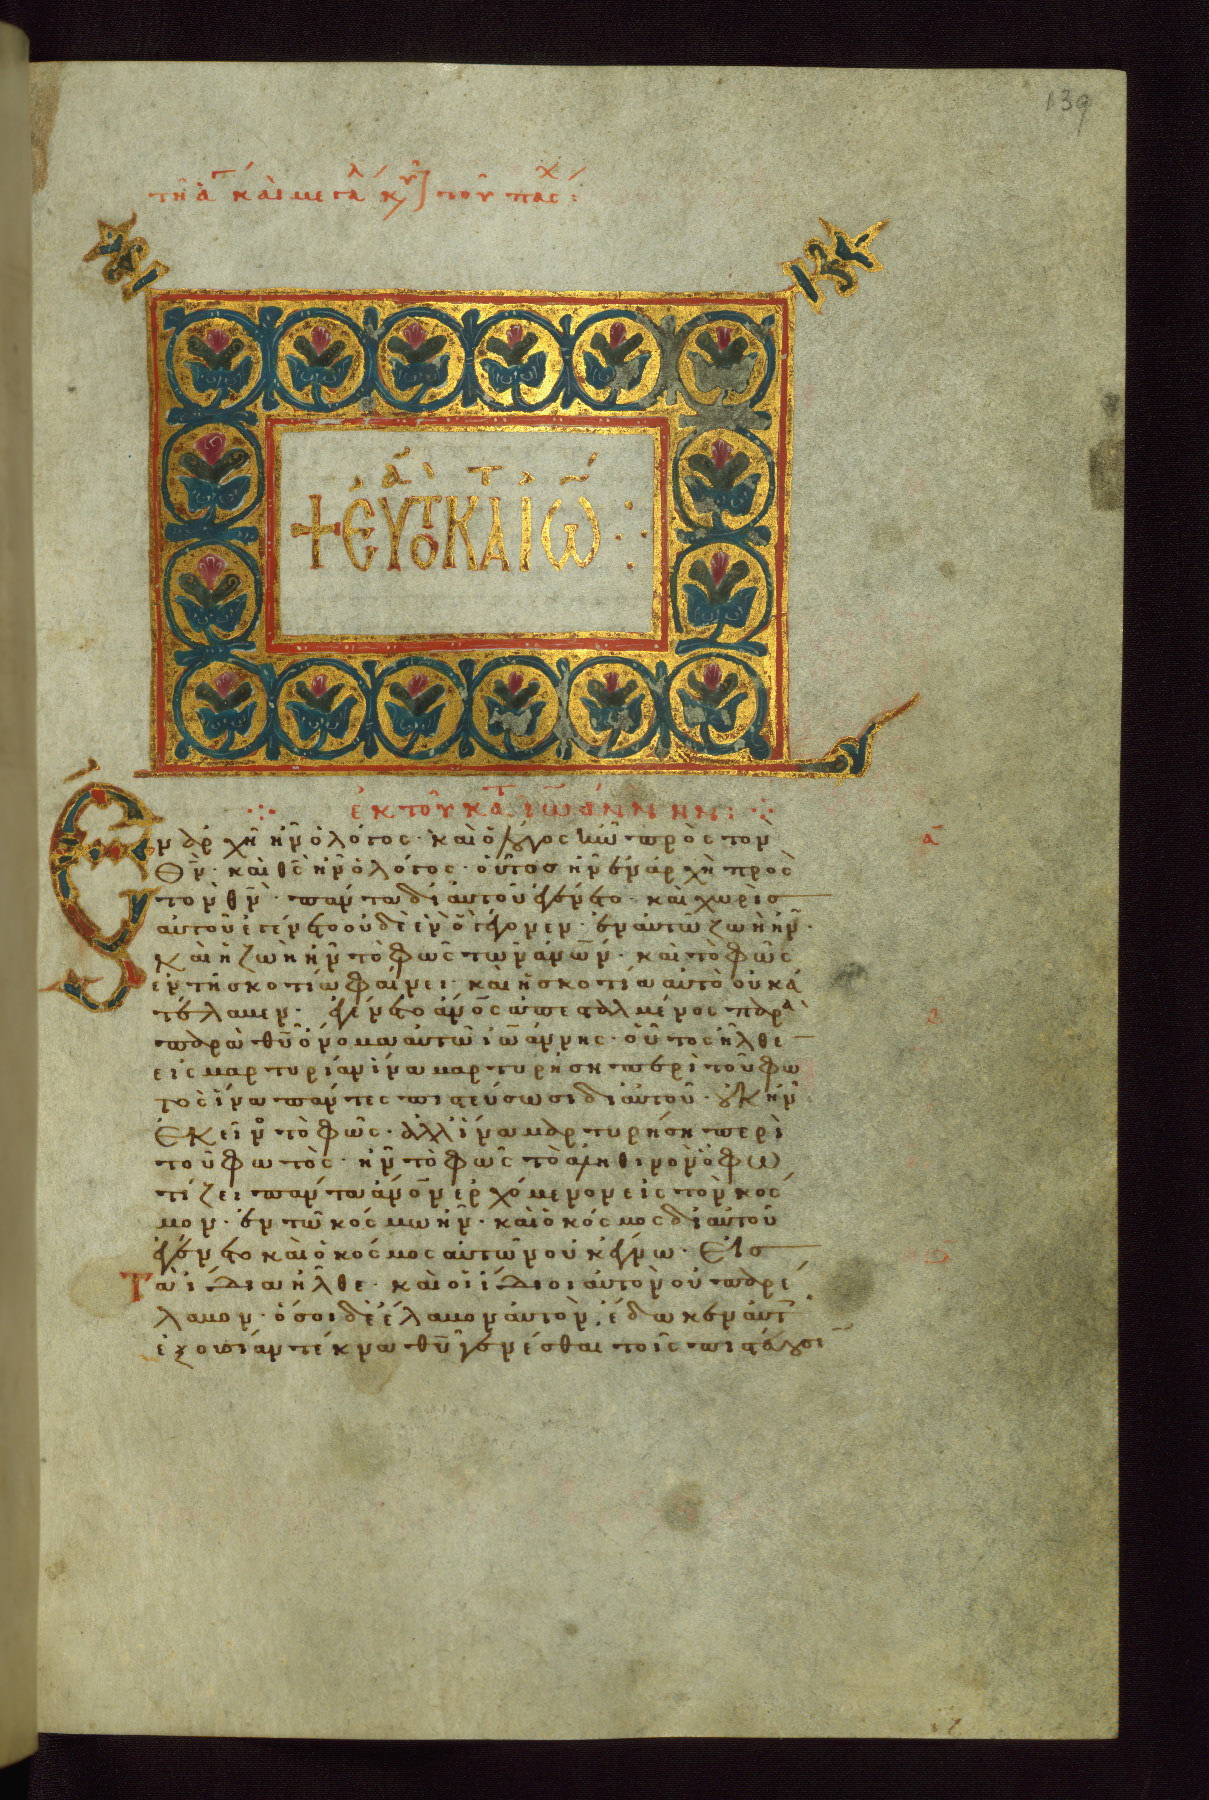 139
τῆ ᾱ καὶ μεγά κυ τοῦ πάσχ :
+ ΕΥΑΓ ΤΟ ΚΑΤ ΙΩ :
ἐκ τοῦ κατ ἰωάννην :
Εν ἀρχῆ ἦν ὁ λόγος· καὶ ὁ λόγος ἦν πρὸς τὸν
θν̀· καὶ θς̀ ἦν ὁ λόγος· οὗτος ἦν ἐν ἀρχῆ πρὸς
τὸν θν̀· πάντα δι αὐτοῦ ἐγένετο· καὶ χωρὶς
αὐτοῦ ἐγένετο οὐδὲ ἓν ὃ γέγονεν· ἐν αὐτῶ ζωὴ ἦν·
καὶ ἡ ζωὴ ἦν τὸ φῶς τῶν ἀνων· καὶ τὸ φῶς
ἐν τῆ σκοτία φαίνει· καὶ ἡ σκοτία αὐτὸ οὐ κα
τέλαβεν· ἐγένετο ἀνος ἀπεσταλμένος παρὰ
παρὰ θυ ὄνομα αὐτῶ ἰωάννης· οὗτος ἦλθε
εἰς μαρτυρίαν ἵνα μαρτυρήση περὶ τοῦ φω
τὸς ἵνα πάντες πιστεύσωσι δι αὐτοῦ· οὐκ ἦν
ἐκεῖνος τὸ φῶς· ἀλλ ἵνα μαρτυρήση περὶ
τοῦ φωτός· ἦν τὸ φῶς τὸ ἀληθινὸν ὃ φω
τίζει πάντα ἀνον ἐρχόμενον εἰς τὸν κόσ
μον· ἐν τῶ κόσμω ἦν· καὶ ὁ κόσμος δι αὐτοῦ
ἐγένετο καὶ ὁ κόσμος αὐτὸν οὐκ ἔγνω· Εἰς
Τὰ ἴδια ἦλθε· καὶ οἱ ἴδιοι αὐτὸν οὐ παρέ
λαβον· ὅσοι δὲ ἔλαβον αὐτὸν, ἔδωκεν αὐτ
ἐξουσίαν τέκνα θυ γενέσθαι τοῖς πιστεύουσι